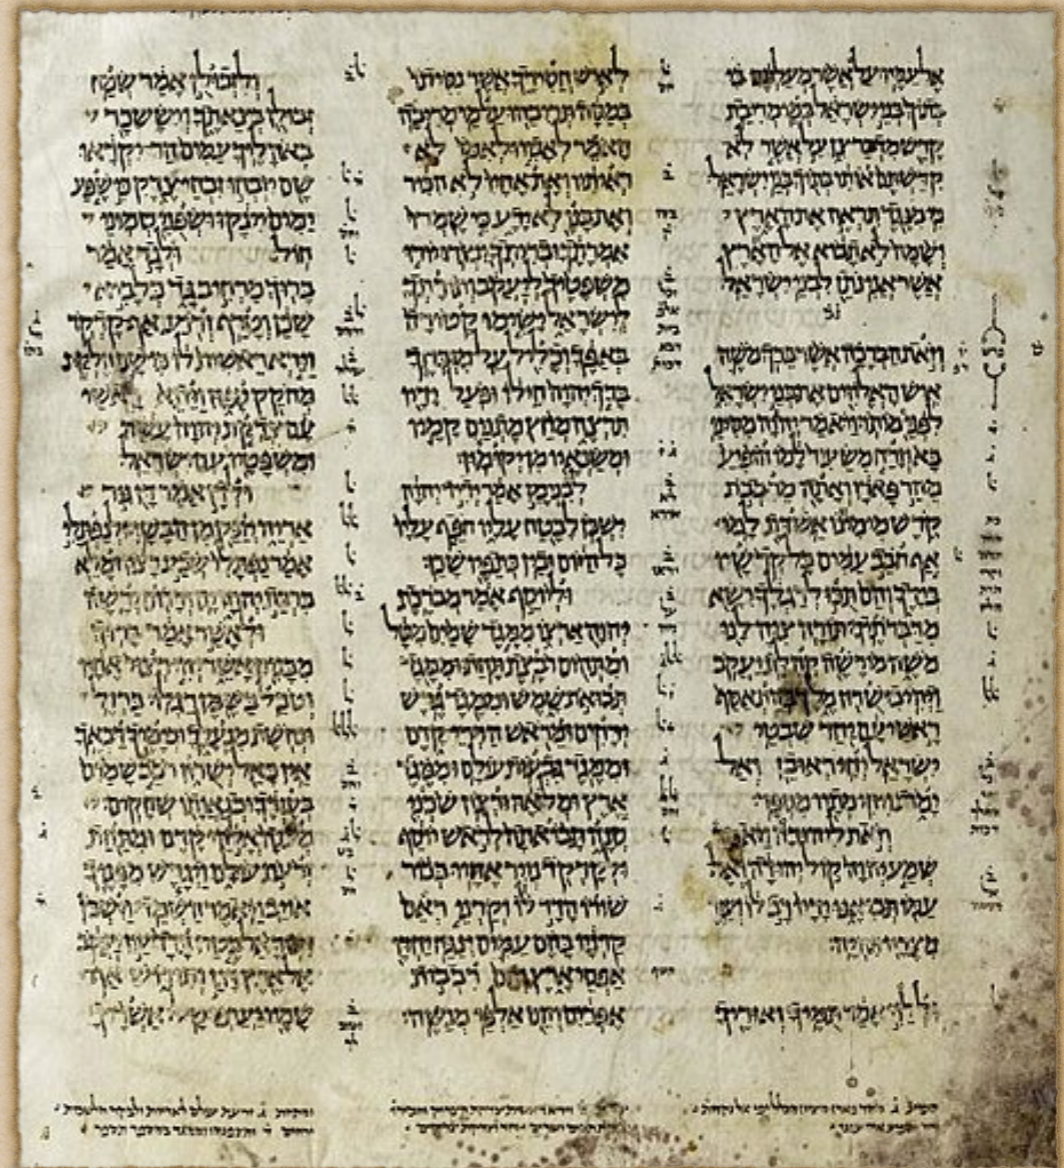 אל עמיו על אשר מעלתם בי
בתוך בני ישראל במי מריבת
קדש מדבר צן על אשר לא
קדשתם אותי בתוך בני ישראל
כי מנגד תראה את הארץ
ושמה לא תבוא אל הארץ
אשר אני נתן לבני ישראל
וזאת הברכה אשר ברך משה
איש האלהים את בני ישראל
לפני מותו ויאמר יהוה מסיני
בא וזרח משעיר למו הופיע
מהר פארן ואתה מרבבת
קדש מימינו אשדת למו
אף חבב עמים כל קדשיו
בידך והם תכו לרגלך ישא
מדברתיך תורה צוה לנו
משה מורשה קהלת יעקב
ויהי בישרון מלך בהתאסף
ראשי עם יחד שבטי
ישראל יחי ראובן ואל
ימת ויהי מתיו מספר
וזאת ליהודה ויאמר
שמע יהוה קול יהודה ואל
עמו תביאנו ידיו רב לו ועזר
מצריו תהיה
וללוי אמר תמיך ואוריך
לאיש חסידך אשר נסיתו
במסה תריבהו על מי מריבה
האמר לאביו ולאמו לא
ראיתיו ואת אחיו לא הכיר
ואת בנו לא ידע כי שמרו
אמרתך ובריתך ינצרו יורו
משפטיך ליעקב ותורתך
לישראל ישימו קטורה
באפך וכליל על מזבחך
ברך יהוה חילו ופעל ידיו
תרצה מחץ מתנים קמיו
ומשנאיו מן יקומון
לבנימן אמר ידיד יהוה
ישכן לבטח עליו חפף עליו
כל היום ובין כתפיו שכן
וליוסף אמר מברכת
יהוה ארצו ממגד שמים מטל
ומתהום רבצת תחת וממגד
תבואת שמש וממגד גרש
ירחים ומראש הררי קדם
וממגד גבעות עולם וממגד
ארץ ומלאה ורצון שכני
סנה תבואתה לראש יוסף
ולקדקד נזיר אחיו בכור
שורו הדר לו וקרני ראם
קרניו בהם עמים ינגח יחדו
אפסי ארץ והם רבבות
אפרים והם אלפי מנשה
ולזבולן אמר שמח
זבולן בצאתך ויששכר
באהליך עמים הר יקראו
שם יזבחו זבחי צדק כי שפע
ימים יינקו ושפני טמוני
חול ולגד אמר
ברוך מרחיב גד כלביא
שכן וטרף זרוע אף קדקד
וירא ראשית לו כי שם חלקת
מחקק ספון ויתא ראשי
עם צדקת יהוה עשה
ומשפטיו עם ישראל
ולדן אמר דן גור
אריה יזנק מן הבשן ולנפתלי
אמר נפתלי שבע רצון ומלא
ברכת יהוה ים ודרום ירשה
ולאשר אמר ברוך
מבנים אשר יהי רצוי אחיו
וטבל בשמן רגלו ברזל
ונחשת מנעליך וכימיך דבאך
אין כאל ישרון רכב שמים
בעזרך ובגאותו שחקים
מענה אלהי קדם ומתחת
זרעת עולם ויגרש מפניך
אויב ויאמר השמד וישכן
ישראל בטח בדד עין יעקב
אל ארץ דגן ותירוש אף
שמיו יערפו טל אשריך